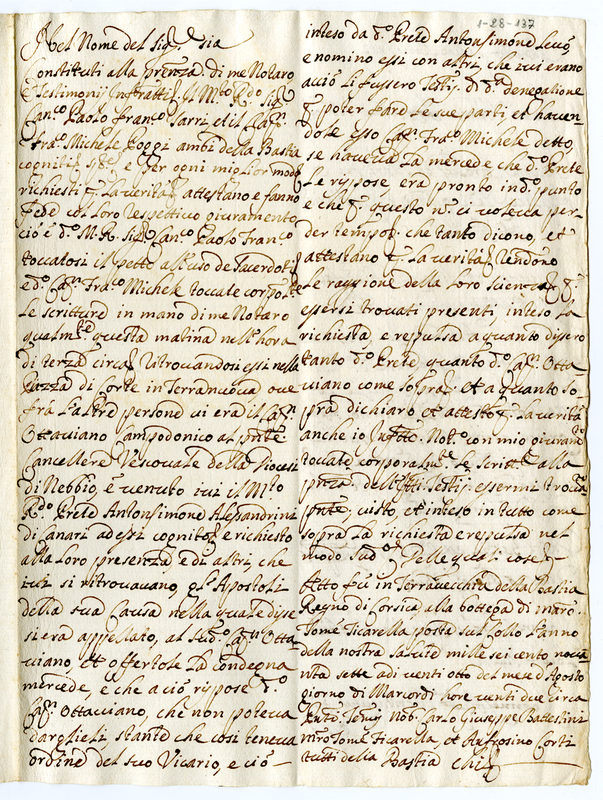 1-28-137
Nel Nome del Sig.re sia
Constituti alla presenza di me Notaro
e Testimonij infratti il M.to R.do Sig.
Can.co Paolo Fran.co Sarri et il Cap.n
Fra.co Michele Poggi ambi della Bastia
cogniti e per ogni miglior modo
richiesti p. la verità attestano e fanno
fede col loro respettivo giuramento
cio è d.o M. R. Sig. Can.co Paolo Fran.co
toccatosi il petto all'uso de Sacerdoti
e d.o Cap.n Fra.co Michele toccate corpor.te
le scritture in mano di me Notaro
qualm.te questa matina nell'hora
di terza circa ritrovandosi essi nella
Piazza di Corte in Terranuova ove
fra l'altre persone vi era il Cap.n
Ottaviano Campodonico al pnte
Cancellere Vescovale della Diocesi
di Nebbio, è venuto ivi il M.to
R.do Prete Antonsimone Alessandrini
di Canari ad essi cognito e richiesto
alla loro presenza e di altri, che
ivi si ritrovavano, gl'Apostoli
della sua Causa nella quale disse
si era appellato, al sud.o Cap.n Otta-
viano et offertole la condegna
mercede, e che a ciò rispose d.o
Cap.n Ottavviano, che non poteva
darglieli, stante che così teneva
ordine del suo Vicario, e ciò
inteso da d.o Prete Antonsimone levò,
e nominò essi con altri che ivi erano
acciò li fussero Testij di d.a denegatione
p. poter fard le sue parti et haven-
dole esso Cap.n Fra.co Michele detto,
se haveva la mercede che d.o Prete
le rispose era pronto in d.o punto
e che p. questo n. ci voleva per-
der tempo che tanto dicono, et
attestano p. la verità rendono
le raggione della loro scienza p.
essersi trovati presenti, inteso la
richiesta, e repulsa a quanto dissero
tanto d.o Prete quanto d.o Cap.n Otta
viano come sopra. et a quanto so-
pra dichiaro et attesto p. la verità
anche io Not.o con mio giuram.to
toccate corporalm.te le Scritt.e alla
pnza dell'Testij essermi trovato
pnte, visto, et inteso in tutto come
sopra la richiesta e repulsa nel
modo sud.o Delle quali cose
Atto fù in Terravecchia della Bastia
Regno di Corsica, alla bottega di mro
Tomè Ficarella posta sul Collo l'anno
della nostra salute mille sei cento nova
nta sette a di venti otto del mese d'Agosto
giorno di Marcordì hore venti due circa
Pnti Tomij Nob. Carlo Giuseppe Battestini
mro Tomè Ficarella, et Anfrosino Corti
tutti della Bastia